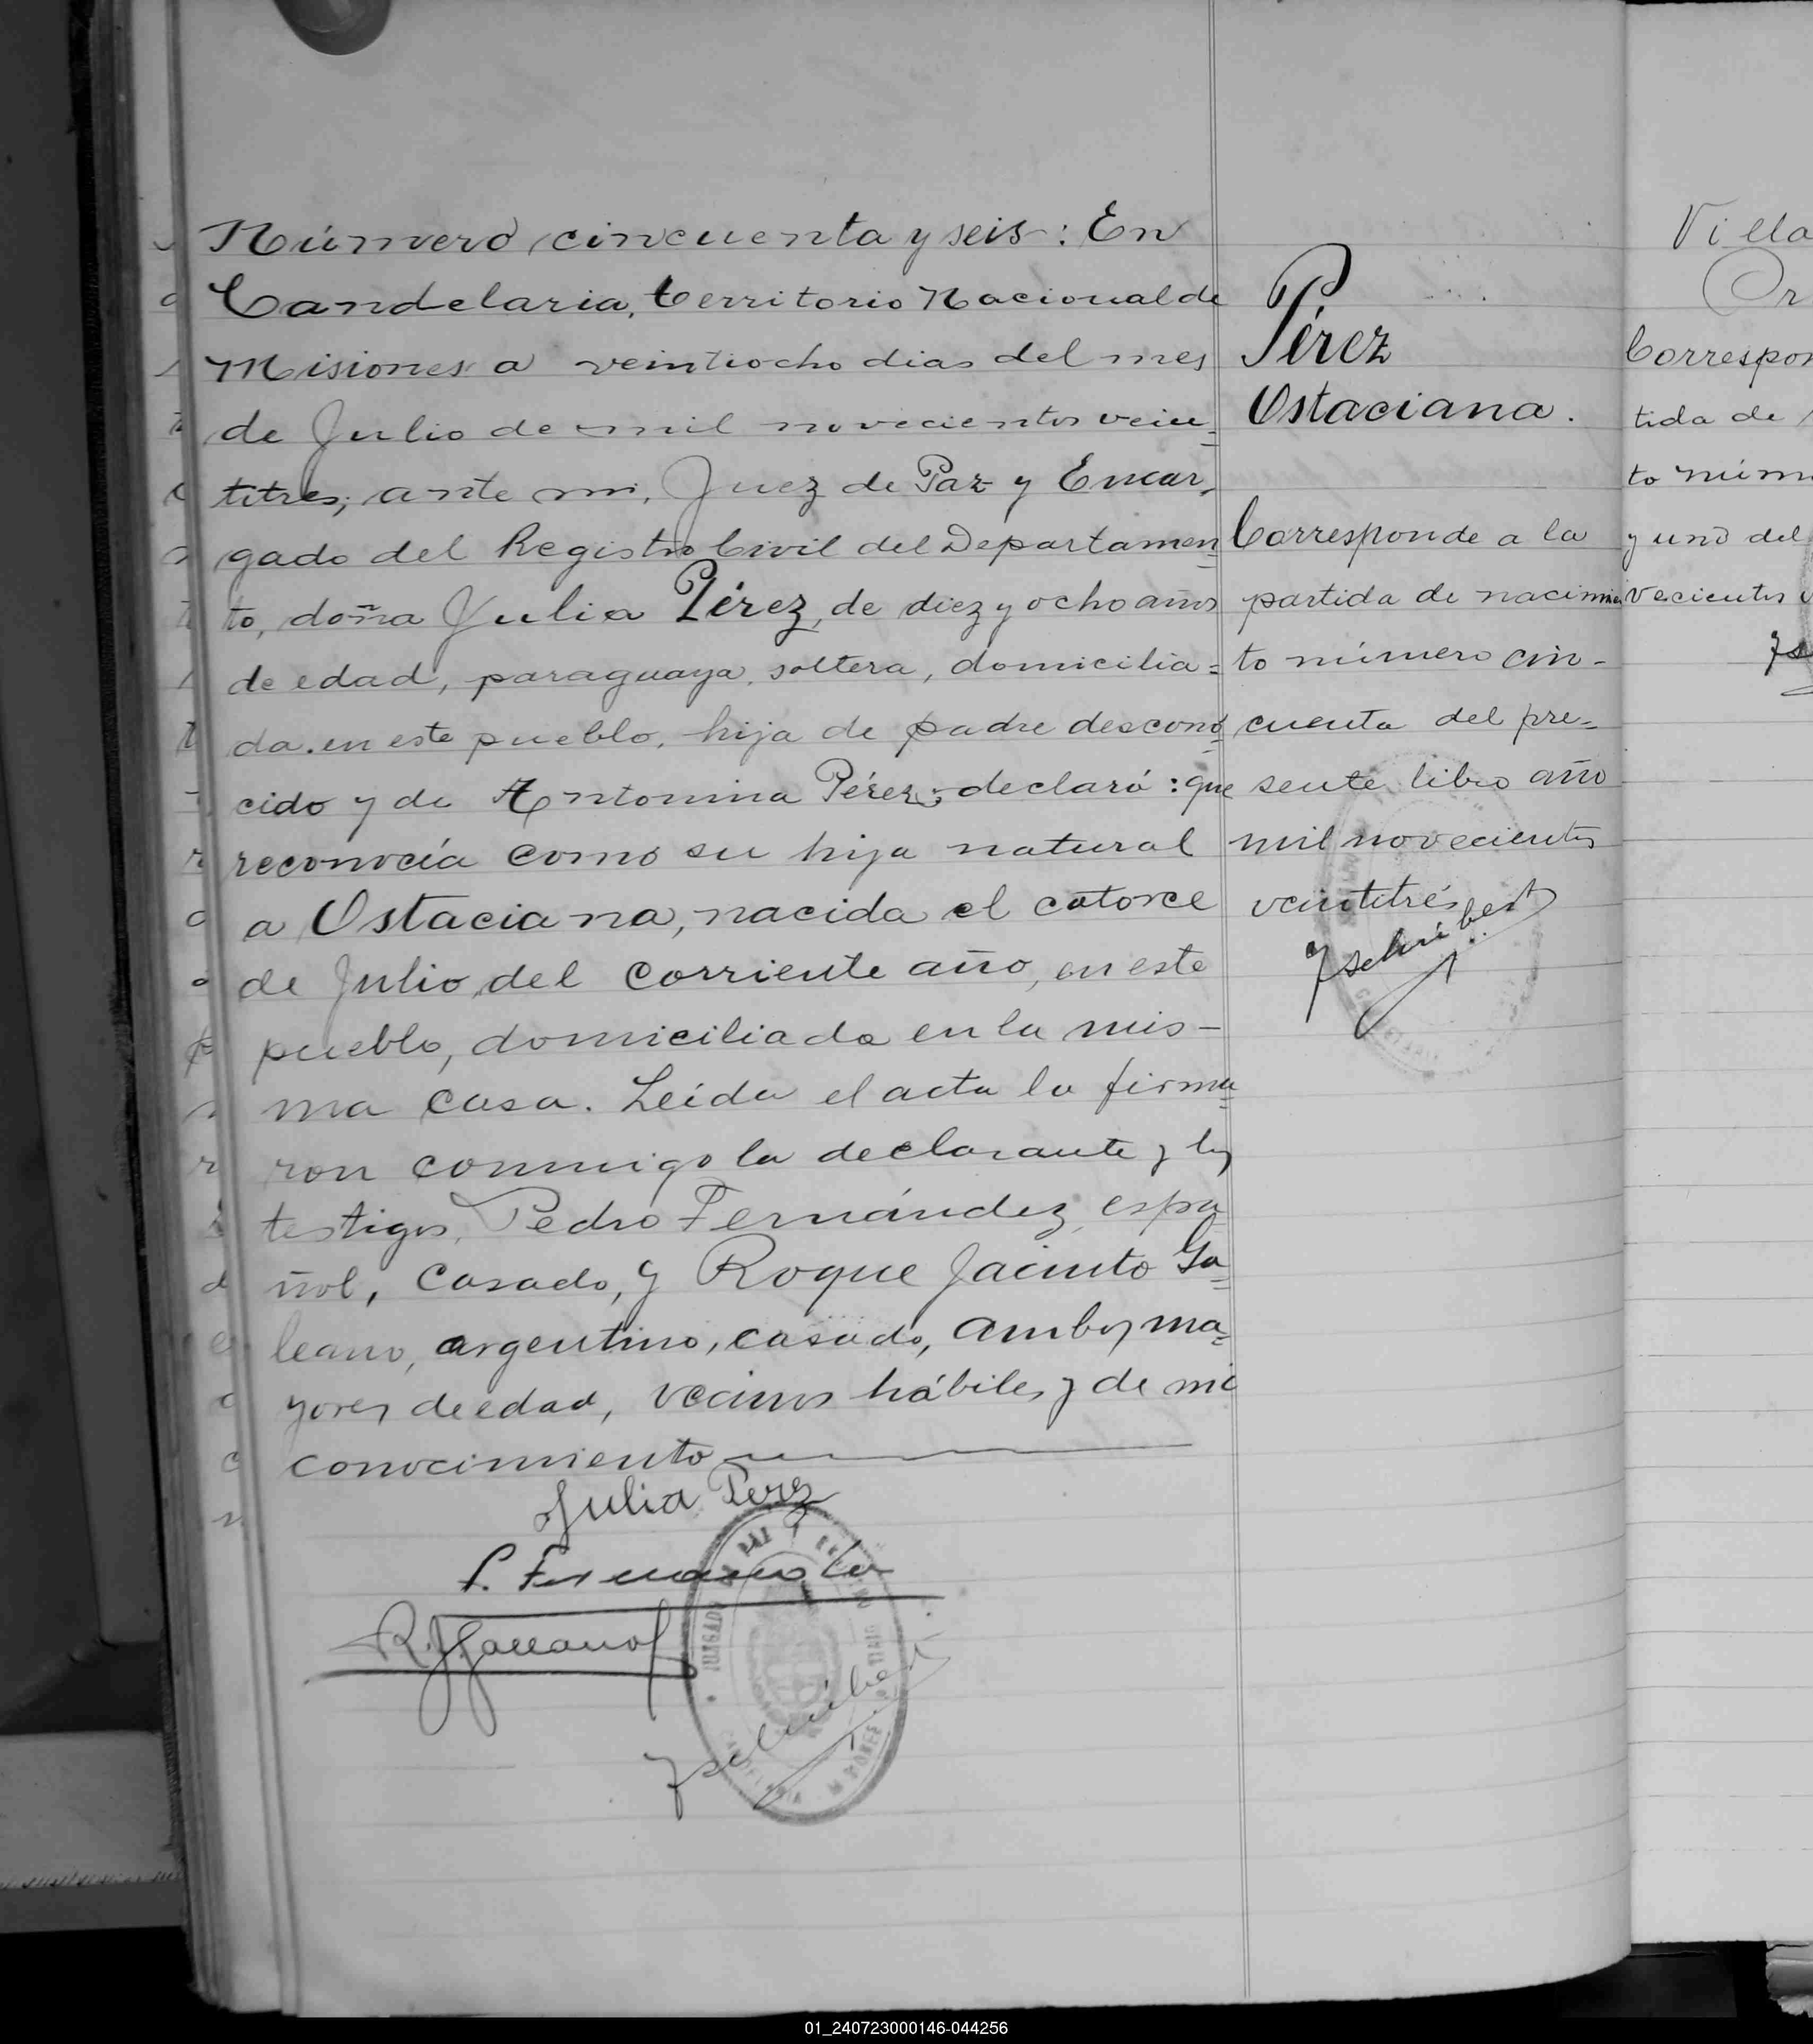 Número cincuenta y seis: En
Candelaria, territorio Nacional de
Misiones a veintiocho dias del mes
de Julio de mil novecientos vein=
titres, ante mi, Juez de Paz y Encar=
gado del Registro Civil del Departamen=
to, doña Julia Pérez, de diez y ocho años
de edad, paraguaya, soltera, domicilia=
da en este pueblo, hija de padre descono=
cido y de Antonina Pérez; declaró: que
reconocía como su hija natural
a Ostaciana, nacida el catorce
de Julio del corriente año, en este
pueblo, domiciliada en la mis-
ma casa. Leída el acta la firma=
ron conmigo la declarante y los
testigos, Pedro Fernández, espa=
ñol, casado, y Roque Jacinto Ga=
leano, argentino, casado, ambos ma=
yores de edad, vecinos hábiles y de mi
conocimiento
Julia Perez
P. Fernandez
R. J. Galeano
JUZGADO DE PAZ
CANDELARIA MISIONES
Pérez
Ostaciana.
Corresponde a la
partida de nacimien
to número cin-
cuenta del pre=
sente libro año
mil novecientos
veintitrés
Villa
Or
Correspon
tida de
to núm
y uno del
vecientos
01_240723000146-044256